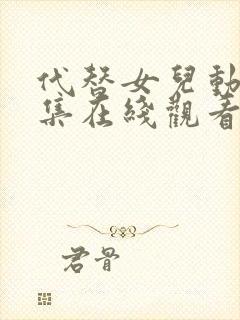 代替女兒動
集在綫觀看
君骨